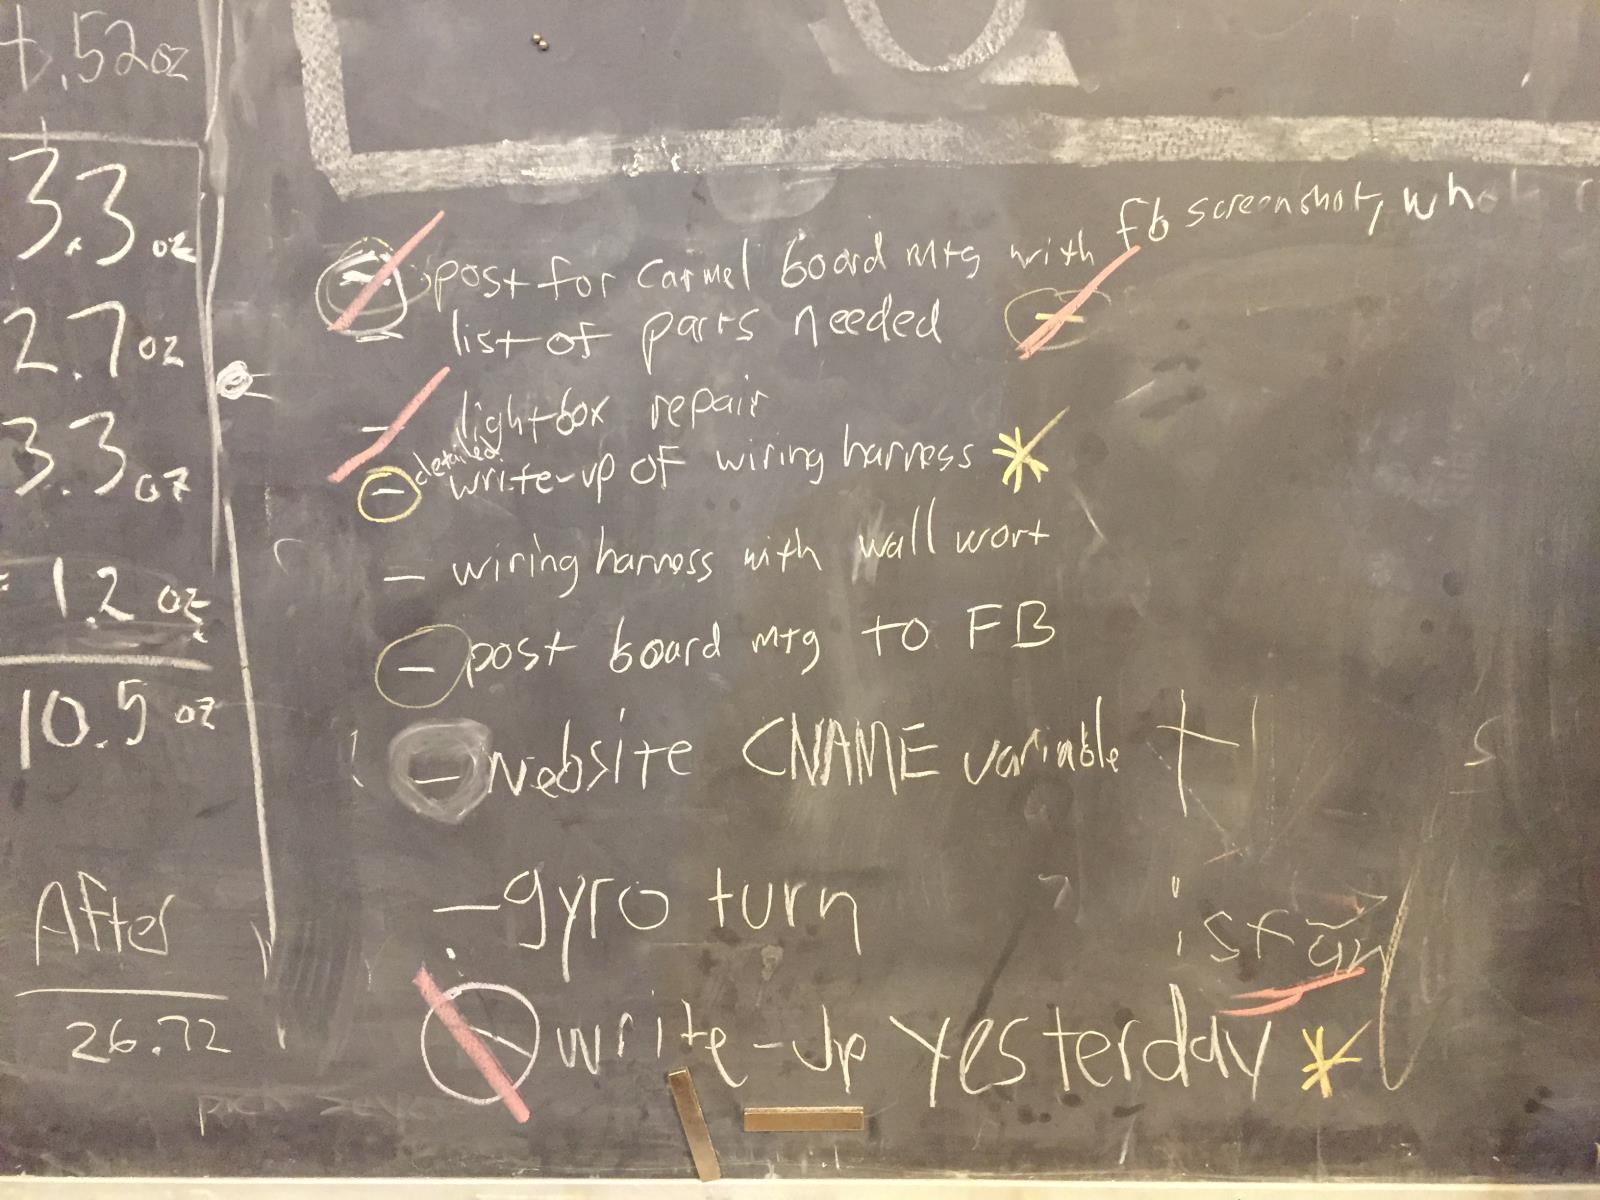 .52oz
3.3oz
2.7oz
3.3oz
1.2 oz
10.5 oz
After
26.72
- post for Carmel board mtg with fb screenshot,
list of parts needed -
- lightbox repair
- detailed write-up of wiring harness *
- wiring harness with wall wort
- post board mtg to FB
- website CNAME variable
- gyro turn
- write-up yesterday *